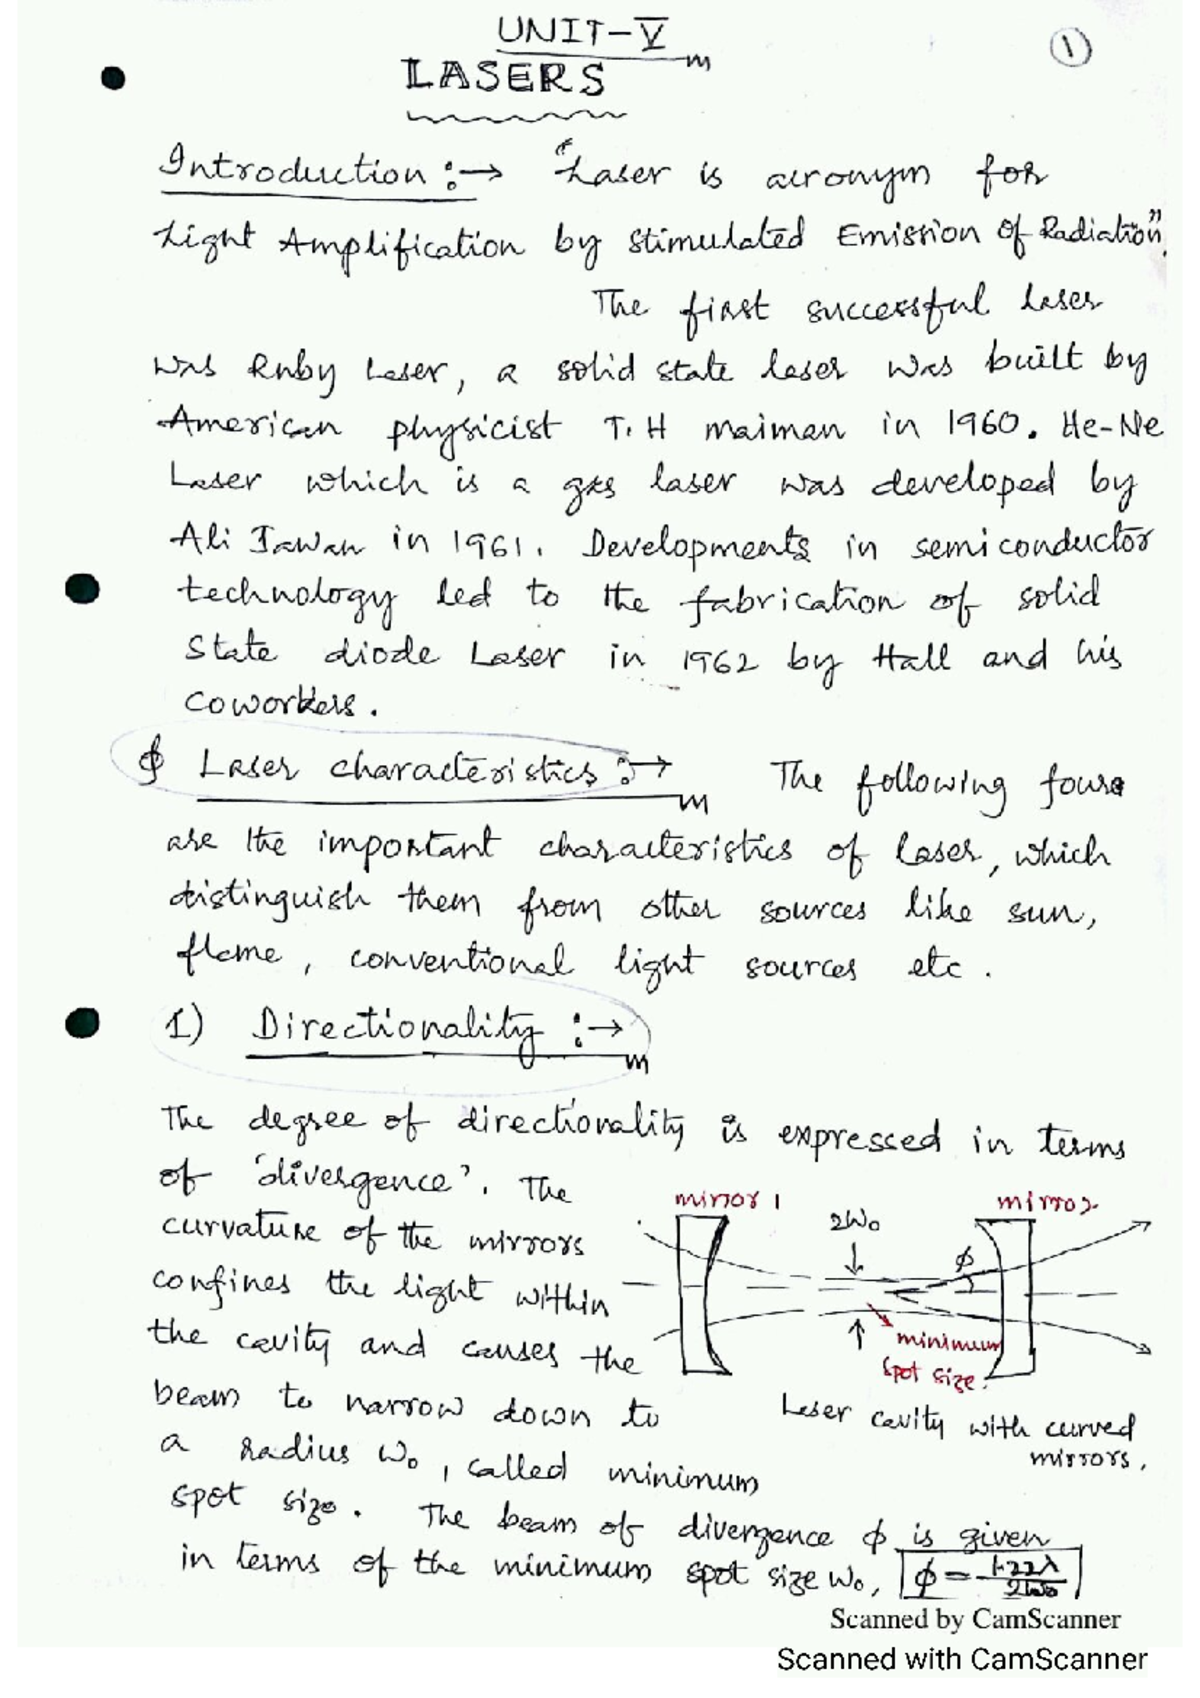 UNIT-V
1
LASERS
Introduction :→ "Laser is acronym for
Light Amplification by stimulated Emission of Radiation".
The first successful laser
was Ruby Laser, a solid state laser was built by
American physicist T.H maiman in 1960. He-Ne
Laser which is a gas laser was developed by
Ali Jawan in 1961. Developments in semiconductor
technology led to the fabrication of solid
State diode Laser in 1962 by Hall and his
coworkers.
Laser characteristics :→ The following four
are the important characteristics of laser, which
distinguish them from other sources like sun,
flame, conventional light sources etc.
1) Directionality :→
The degree of directionality is expressed in terms
of 'divergence'. The
curvature of the mirrors
confines the light within
the cavity and causes the
beam to narrow down to
a radius W₀, called minimum
spot size. The beam of divergence ϕ is given
in terms of the minimum spot size W₀, ϕ = 1.22λ/2W₀
mirror 1
2W₀
mirror
ϕ
minimum
spot size.
Laser cavity with curved
mirrors.
Scanned by CamScanner
Scanned with CamScanner